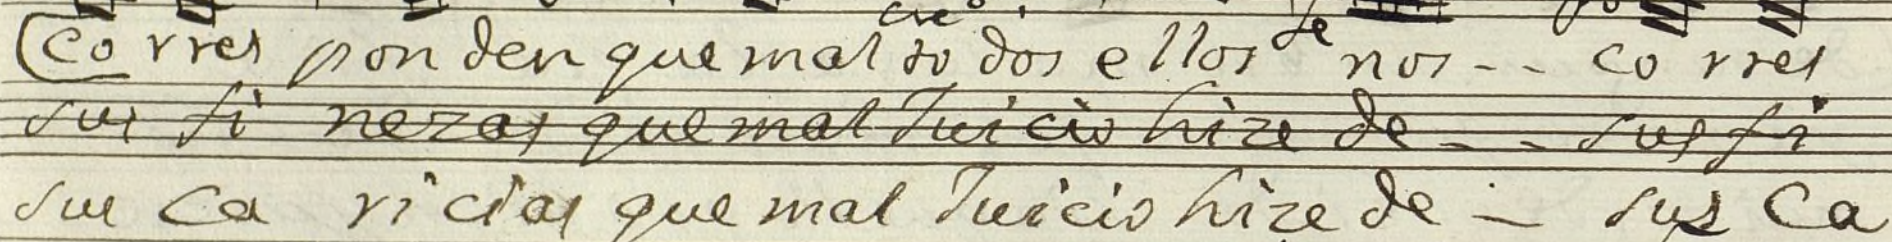 cre
Corres ponden que mal to dos ellos se nos -- co rres
sus fi nezas que mal Juicio hize de -- sus fi
sus Ca ricias que mal Juicio hize de -- sus Ca